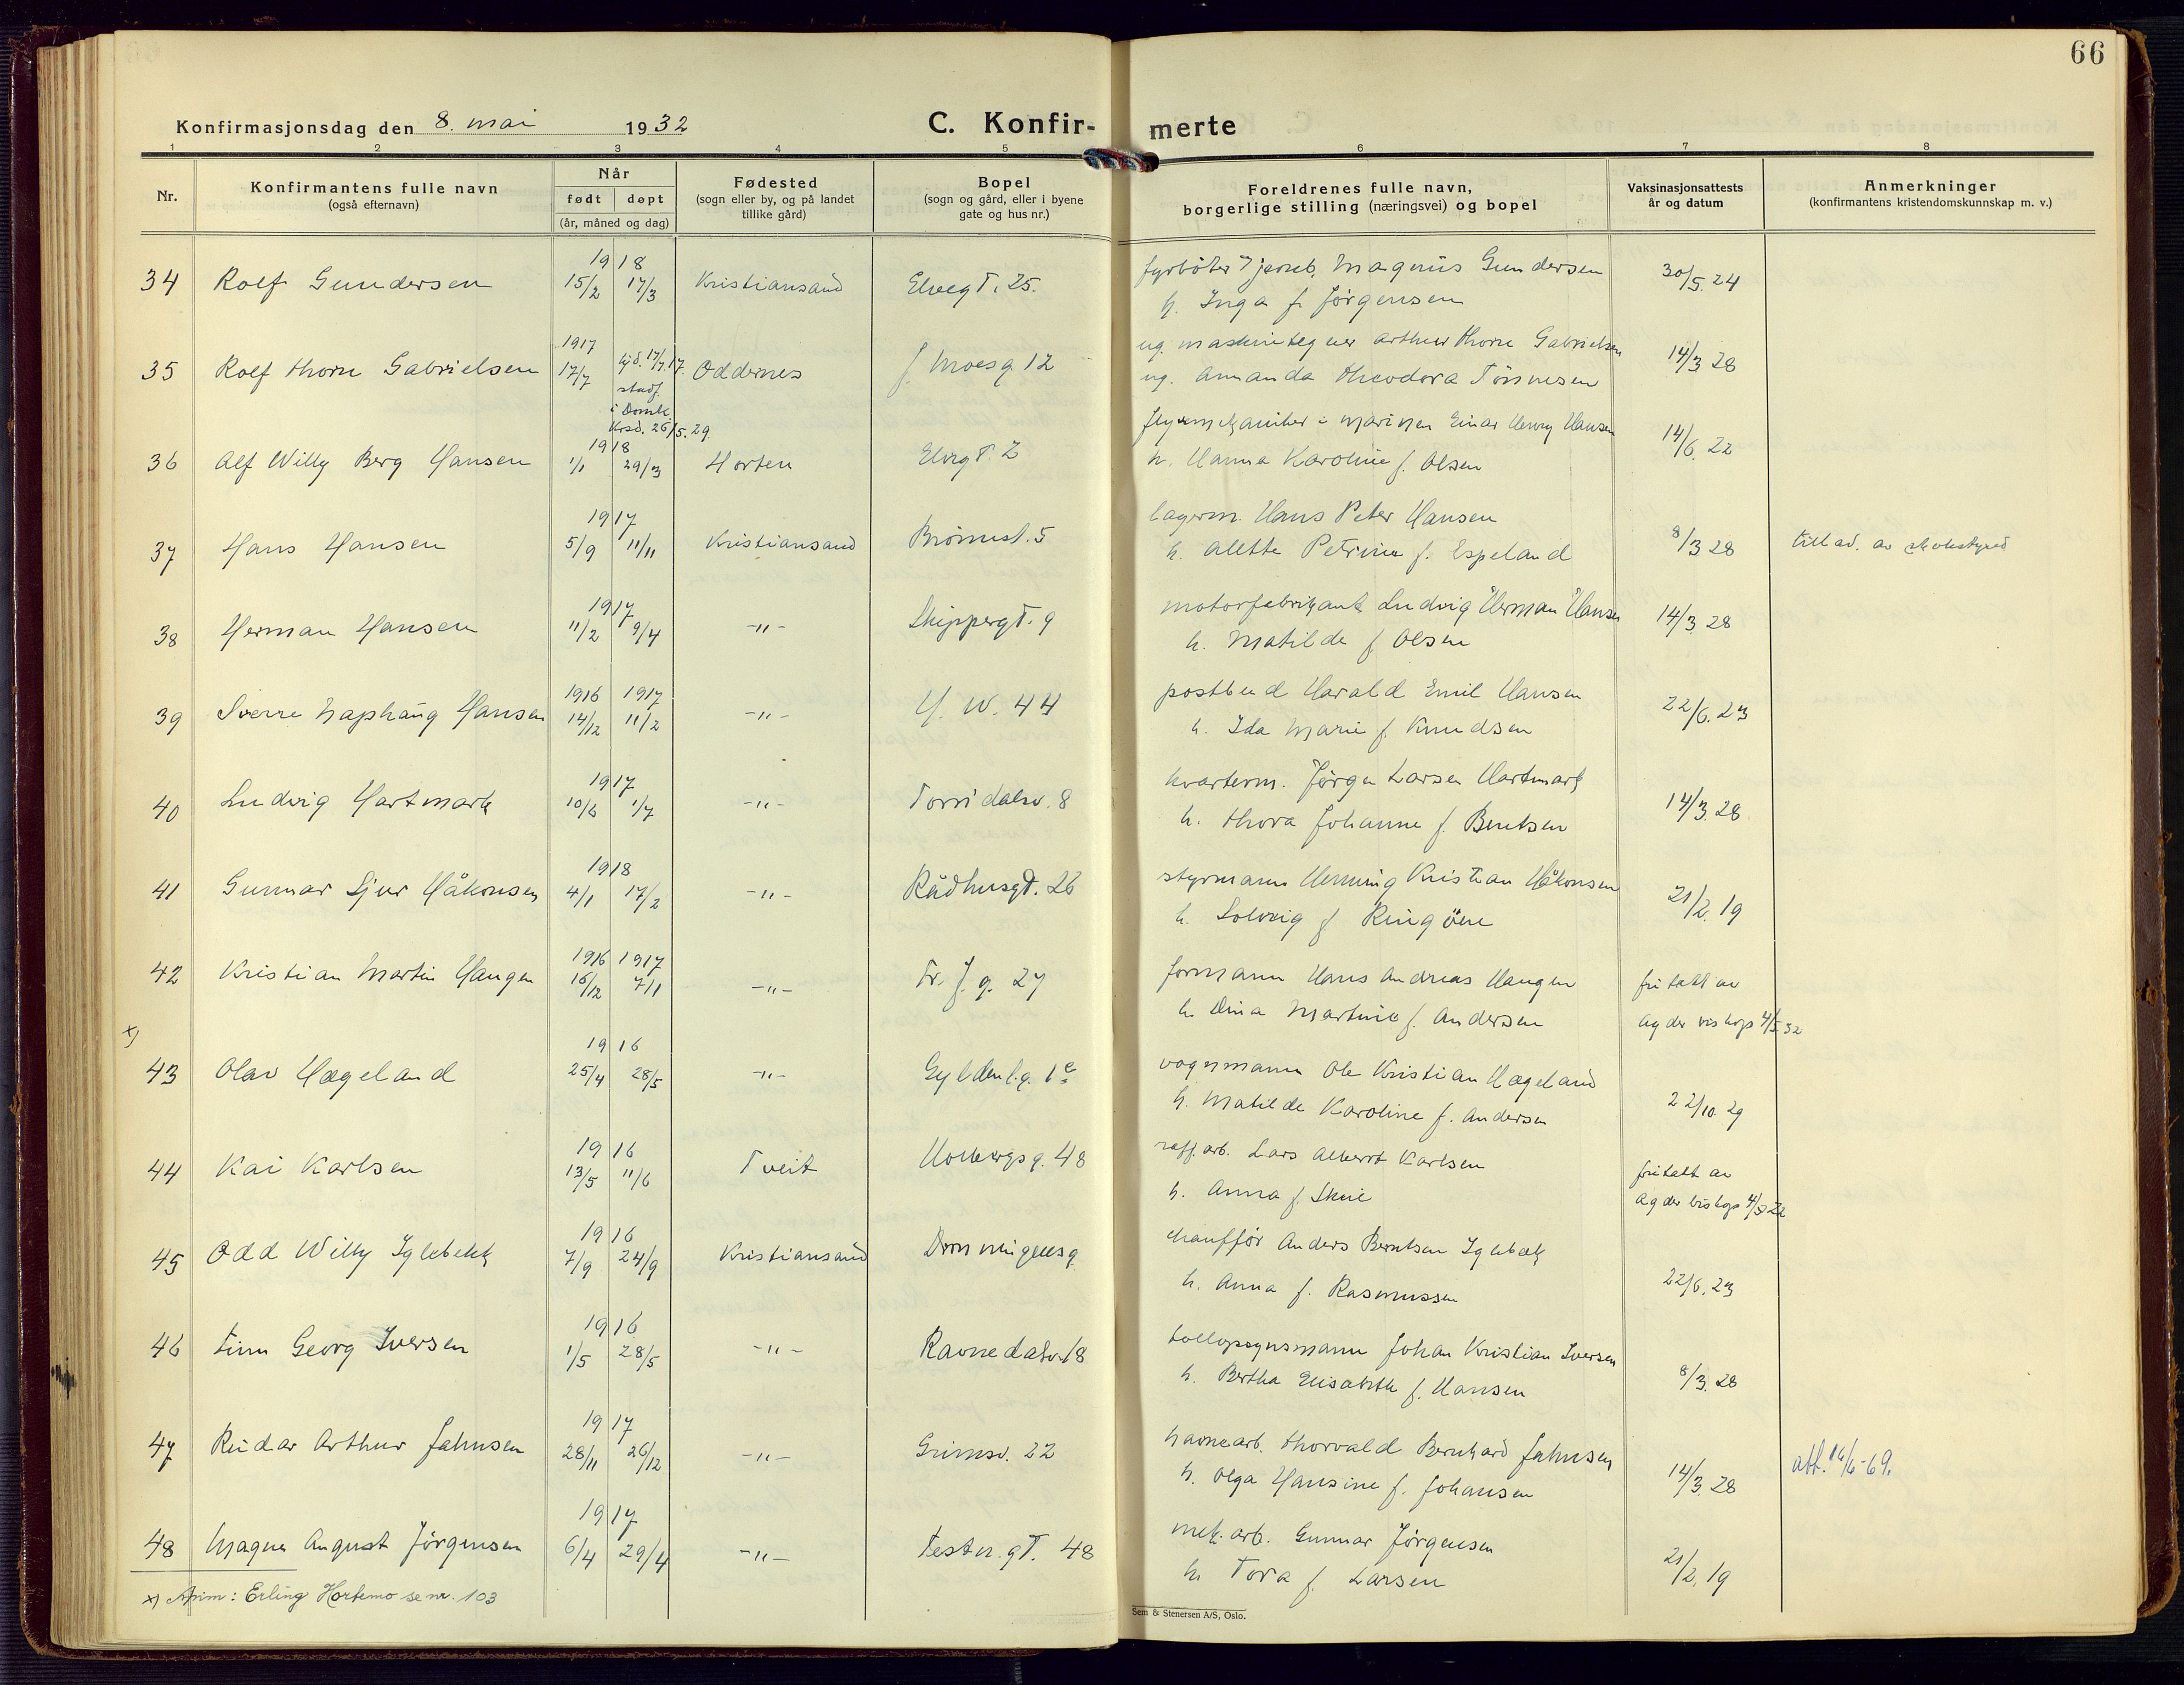 66
Konfirmasjonsdag den 8. mai 1932
C. Konfir- merte
1 2 3 4 5 6 7 8
Nr.
Konfirmantens fulle navn
(også efternavn)
Når
født døpt
(år, måned og dag)
Fødested
(sogn eller by, og på landet
tillike gård)
Bopel
(sogn og gård, eller i byene
gate og hus nr.)
Foreldrenes fulle navn,
borgerlige stilling (næringsvei) og bopel
Vaksinasjonsattests
år og datum
Anmerkninger
(konfirmantens kristendomskunnskap m. v.)
1918
34 Rolf Gundersen 15/2 17/3 Kristiansand Elvegt. 25. fyrbøter Magnus Gundersen 30/5. 24
h. Inga f. Jørgensen
1917
35 Rolf Thorn Gabrielsen 17/7 hjd. 17/7.17. Oddernes J. Moesg 12 ug. maskintegner Arthur Thorn Gabrielsen 14/3 28
stadf. ug. Amanda Theodora Tønnesen
i Domk.
Krsd. 26/5. 29.
1918
36 Alf Willy Berg Hansen 1/1 29/3 Horten Elvegt. 2 flymekaniker i marinen Einar Henry Hansen 14/6. 22
h. Hanna Karoline f. Olsen
1917
37 Hans Hansen 5/9 11/11 Kristiansand Brønnst. 5 lagerm. Hans Peter Hansen 8/3 28 tillad. av skolestyret
h. Alette Petrine f. Espeland
1917
38 Herman Hansen 11/2 9/4 -"- Skippergt. 9 motorfabrikant Ludvig Herman Hansen 14/3 28
h. Matilde f. Olsen
1916 1917
39 Sverre Haphaug Hansen 14/12 11/2 -"- H. W. 44 postbud Harald Emil Hansen 22/6. 23
h. Ida Marie f. Knudsen
1917
40 Ludvig Hartmark 10/6 1/7 -"- Torridalsv. 8 kvarterm. Jørgen Larsen Hartmark 14/3. 28
h. Thora Johanne f. Bentsen
1918
41 Gunnar Sjur Håkonsen 4/1 17/2 -"- Rådhusgt. 26 styrmann Henning Kristian Håkonsen 21/2. 19
h. Solveig f. Ringöen
1916 1917
42 Kristian Martin Haugen 16/12 7/1 -"- Tr. f. g. 27 formann Hans Andreas Haugen fritatt av
h. Dina Martine f. Andersen Agder biskop 4/5. 32
x)
1916
43 Olav Hægeland 25/4 28/5 -"- Gyldenl.g. 1c vognmann Ole Kristian Hægeland 22/10. 29
h. Matilde Karoline f. Andersen
1916
44 Kai Karlsen 13/5 11/6 Tveit Holbergsg. 48 raff. arb. Lars Albert Karlsen fritatt av
h. Anna f. Skeie Agder biskop 4/5 32
1916
45 Odd Willy Iglebekk 7/9 24/9 Kristiansand Dronningensg chauffør Anders Berntsen Iglebæk
h. Anna f. Rasmussen 22/6. 23
1916
46 Finn Georg Iversen 1/5 28/5 -"- Ravnedalsv. 18 tollopsynsmann Johan Kristian Iversen
h. Bertha Elisabeth f. Hansen 8/3. 28
1917
47 Reidar Arthur Jahnsen 28/11 26/12 -"- Grimsv. 22 havnearb. Thorvald Bernhard Jahnsen 14/3. 28 att. 16/6-69.
h. Olga Hansine f. Johansen
1917
48 Magne August Jørgensen 6/4 29/4 -"- Festn.gt. 48 mek. arb. Gunnar Jørgensen
h. Tora f. Larsen 21/2. 19
x) Anm: Erling Hortemo se nr. 103
Sem & Stenersen A/S, Oslo.